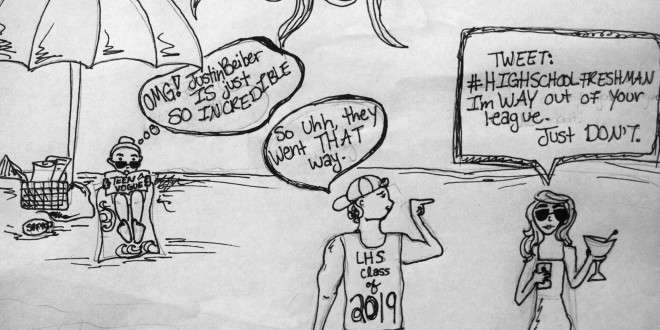 OMG! JustinBeiber
IS just
SO INCREDIBLE
TEEN
VOGUE
So Uhh, they
went THAT
way.
LHS
class
of
2019
TWEET:
#HIGHSCHOOLFRESHMAN
I'm WAY out of your
league.
Just DON'T.